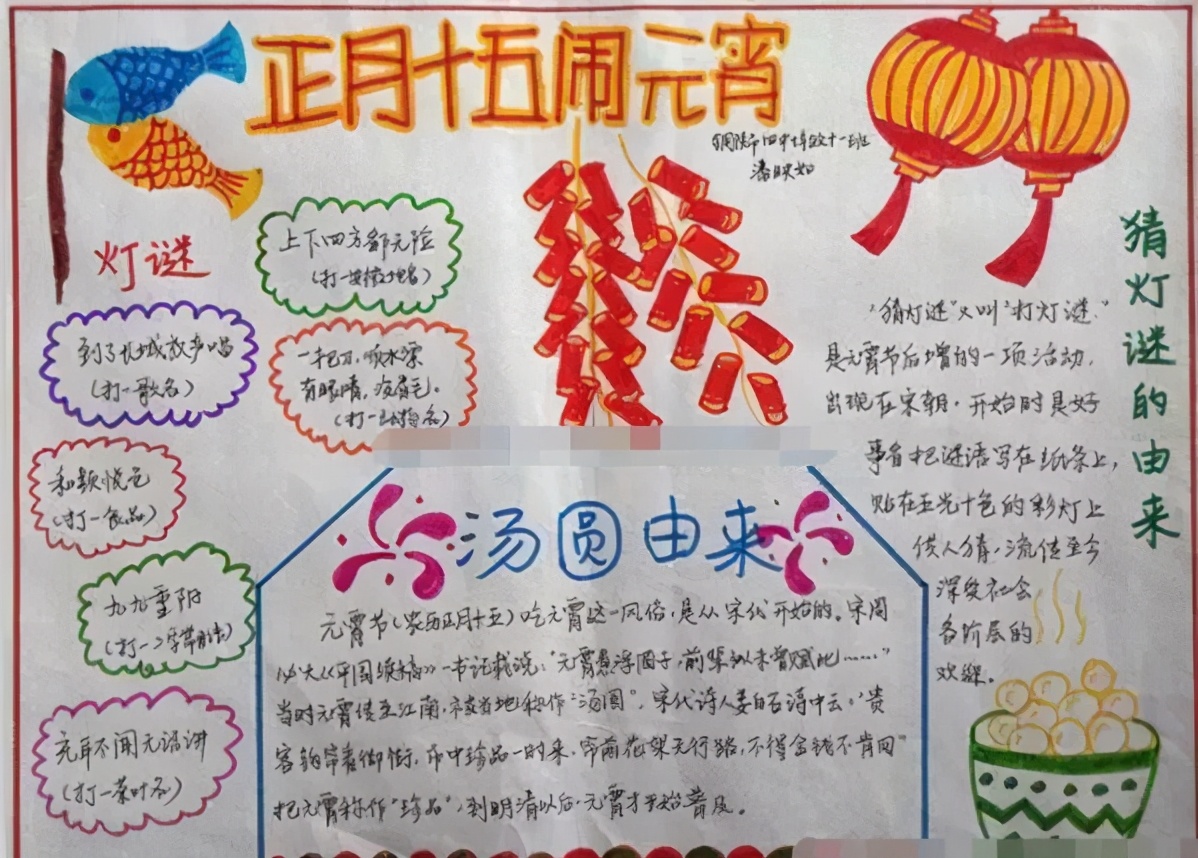 正月十五闹元宵
潘映如
灯谜
上下四方都无险
(打一安徽地名)
到了长城放声唱
(打一歌名)
一把刀,顺水漂
有眼睛,没眉毛。
(打一动物名)
和颜悦色
(打一食品)
九九重阳
充耳不闻无语讲
(打一茶叶名)
猜灯谜的由来
“猜灯谜”又叫“打灯谜”
是元宵节后增的一项活动,
出现在宋朝。开始时是好
事者把谜语写在纸条上,
贴在五光十色的彩灯上
供人猜,流传至今
深受社会
各阶层的
欢迎。
汤圆由来
元宵节(农历正月十五)吃元宵这一风俗,是从宋代开始的。宋周
必大《平园续稿》一书记载说:“元宵煮浮圆子,前辈似未曾赋此……”
当时元宵传至江南,被当地称作“汤圆”。宋代诗人姜白石诗中云:“贵
客钩帘看御街,市中珍品一时来,帘前花架无行路,不得金钱不肯回”
把元宵称作“珍品”,到明清以后,元宵才开始普及。